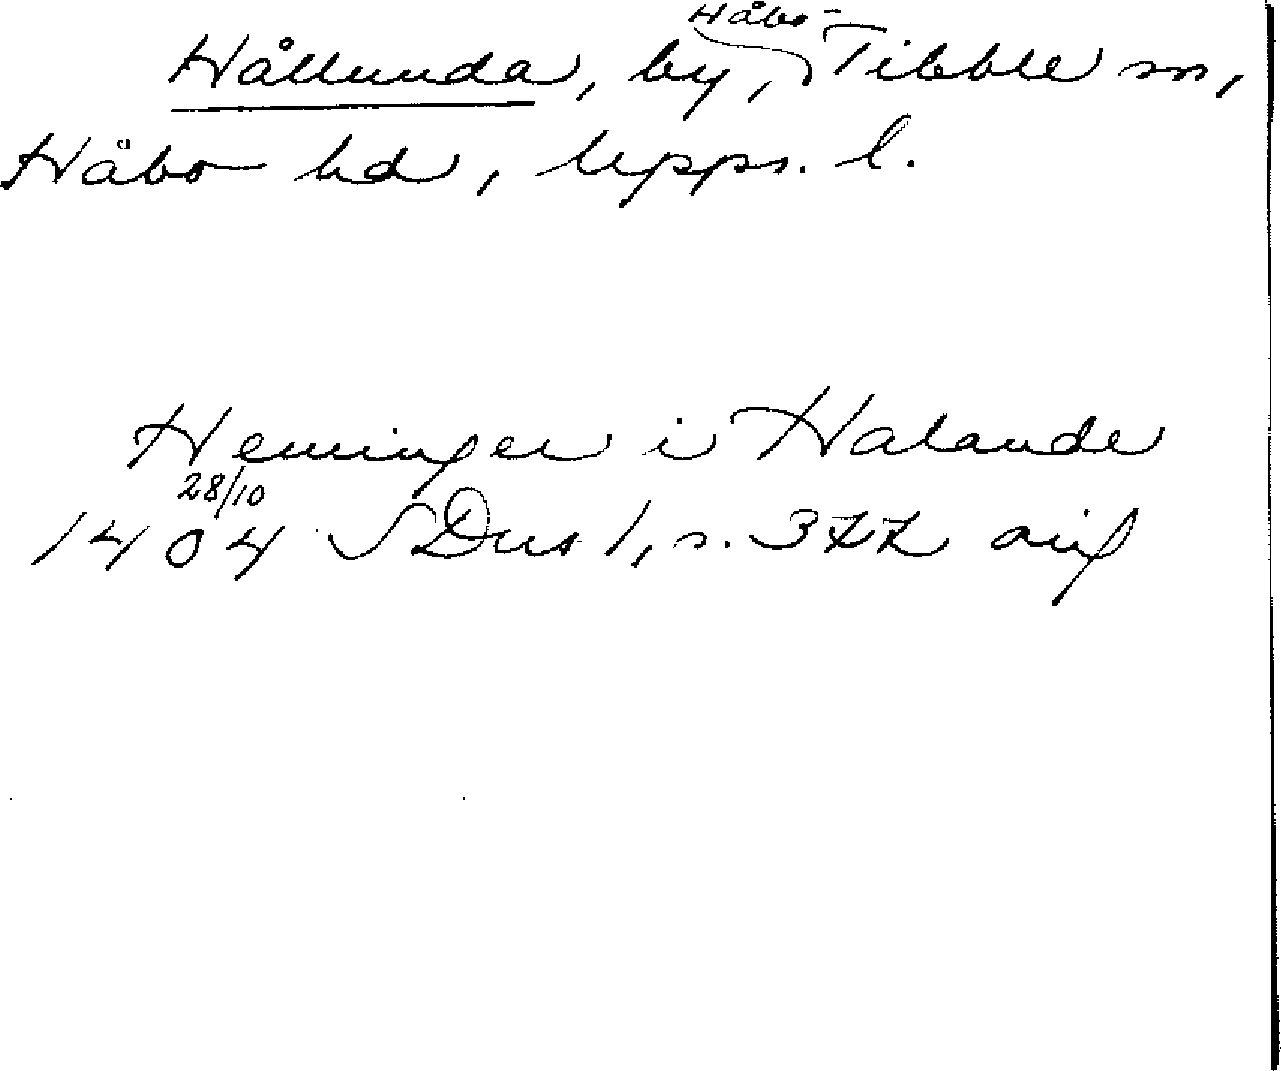 Hållunda, by, Håbo-Tibble sn,
Håbo hd, Upps. l.
Heminger i Halande
28/10
1404 SDns 1, s. 377 avf